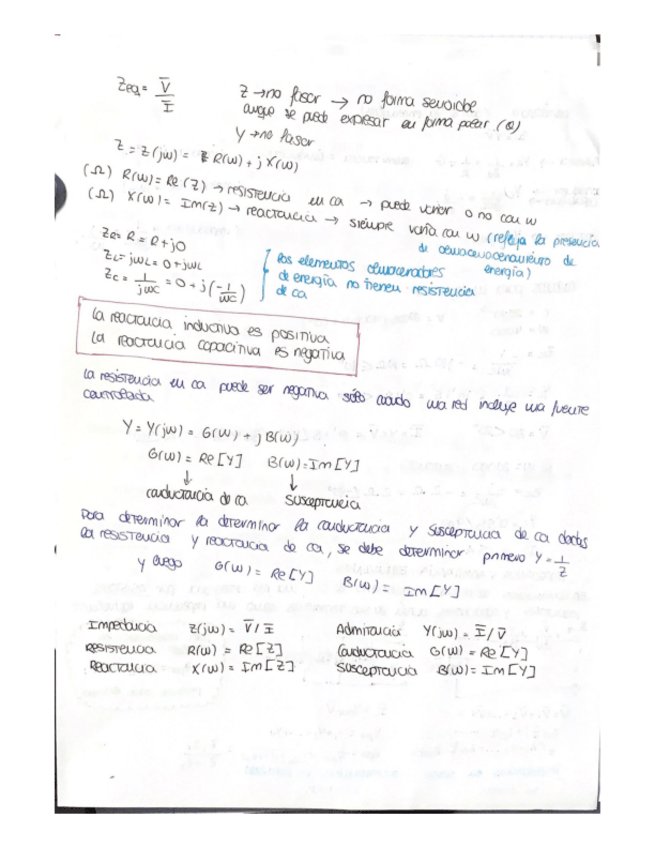 Zeq = V̅ / I̅
Z → no fasor → no forma senoide
aunque se puede expresar en forma polar (Ω)
Y → no fasor
Z = Z(jω) = R(ω) + j X(ω)
(Ω) R(ω) = Re(Z) → resistencia en ca → puede variar o no con ω
(Ω) X(ω) = Im(Z) → reactancia → siempre varía con ω (refleja la presencia
de almacenamiento de
energía)
ZR = R = R + j0
ZL = jωL = 0 + jωL
ZC = 1/jωC = 0 + j(-1/ωC)
Los elementos almacenadores
de energía no tienen resistencia
de ca
La reactancia inductiva es positiva
La reactancia capacitiva es negativa
La resistencia en ca puede ser negativa sólo cuando una red incluye una fuente
controlada
Y = Y(jω) = G(ω) + j B(ω)
G(ω) = Re[Y] B(ω) = Im[Y]
↓ ↓
conductancia de ca susceptancia
Para determinar la determinar la conductancia y susceptancia de ca dadas
la resistencia y reactancia de ca, se debe determinar primero Y = 1/Z
y luego G(ω) = Re[Y] B(ω) = Im[Y]
Impedancia Z(jω) = V̅/I̅ Admitancia Y(jω) = I̅/V̅
Resistencia R(ω) = Re[Z] Conductancia G(ω) = Re[Y]
Reactancia X(ω) = Im[Z] Susceptancia B(ω) = Im[Y]